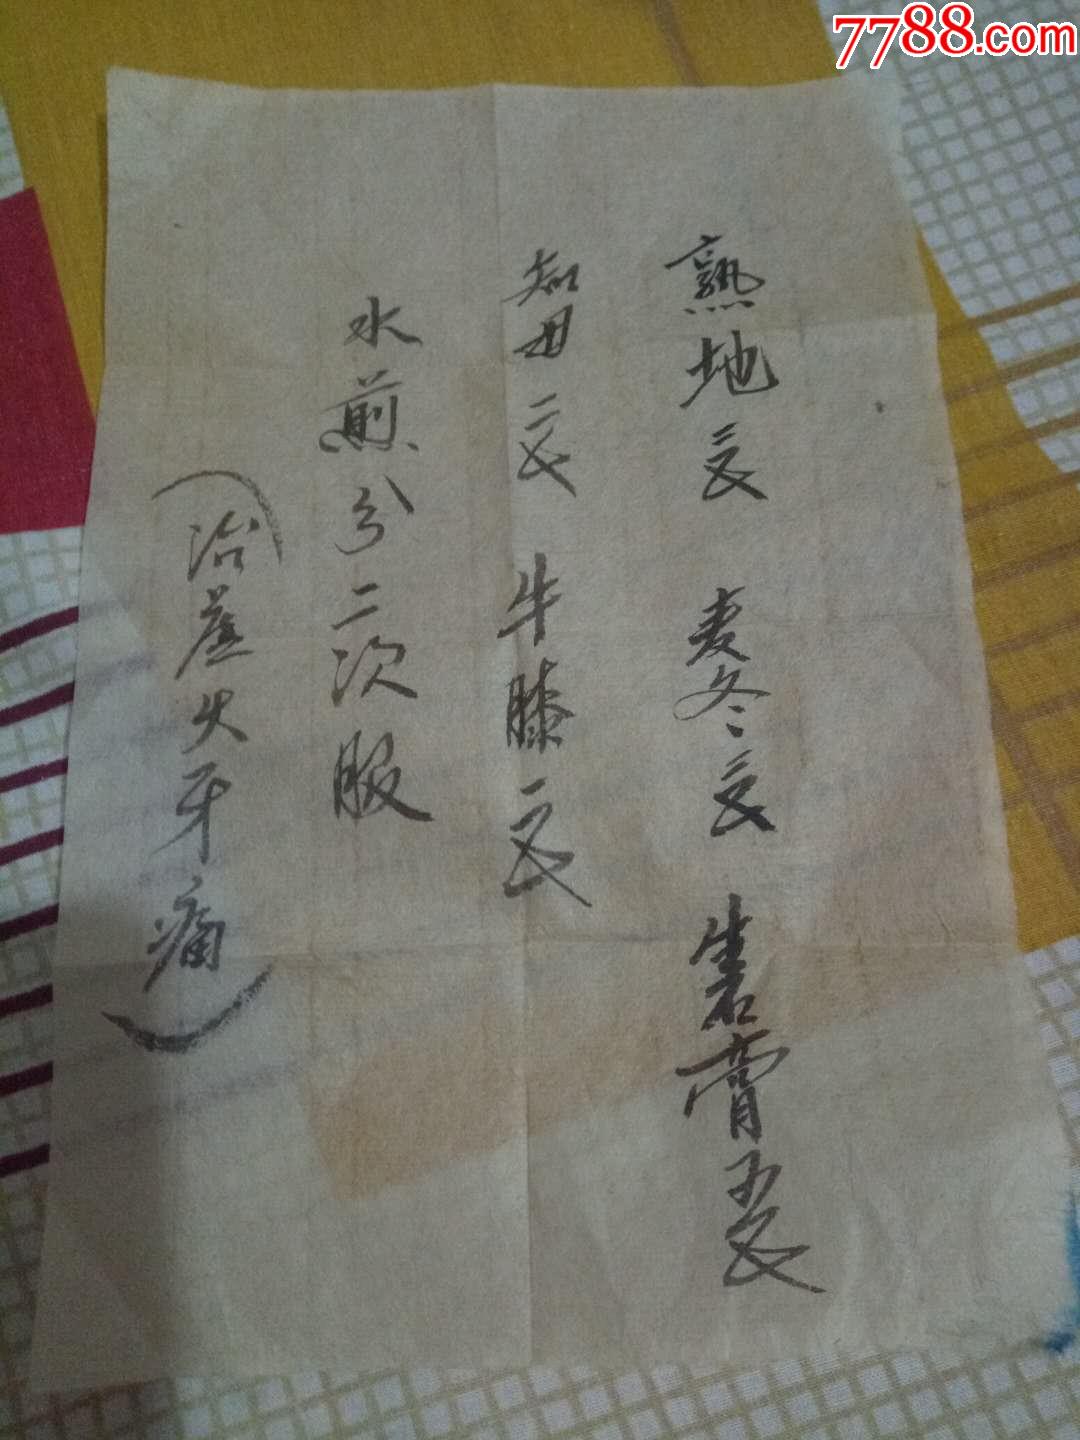 7788.com
熟地三钱 麦冬三钱 生石膏五钱
知母二钱 牛膝一钱
水煎分二次服
(治虚火牙痛)